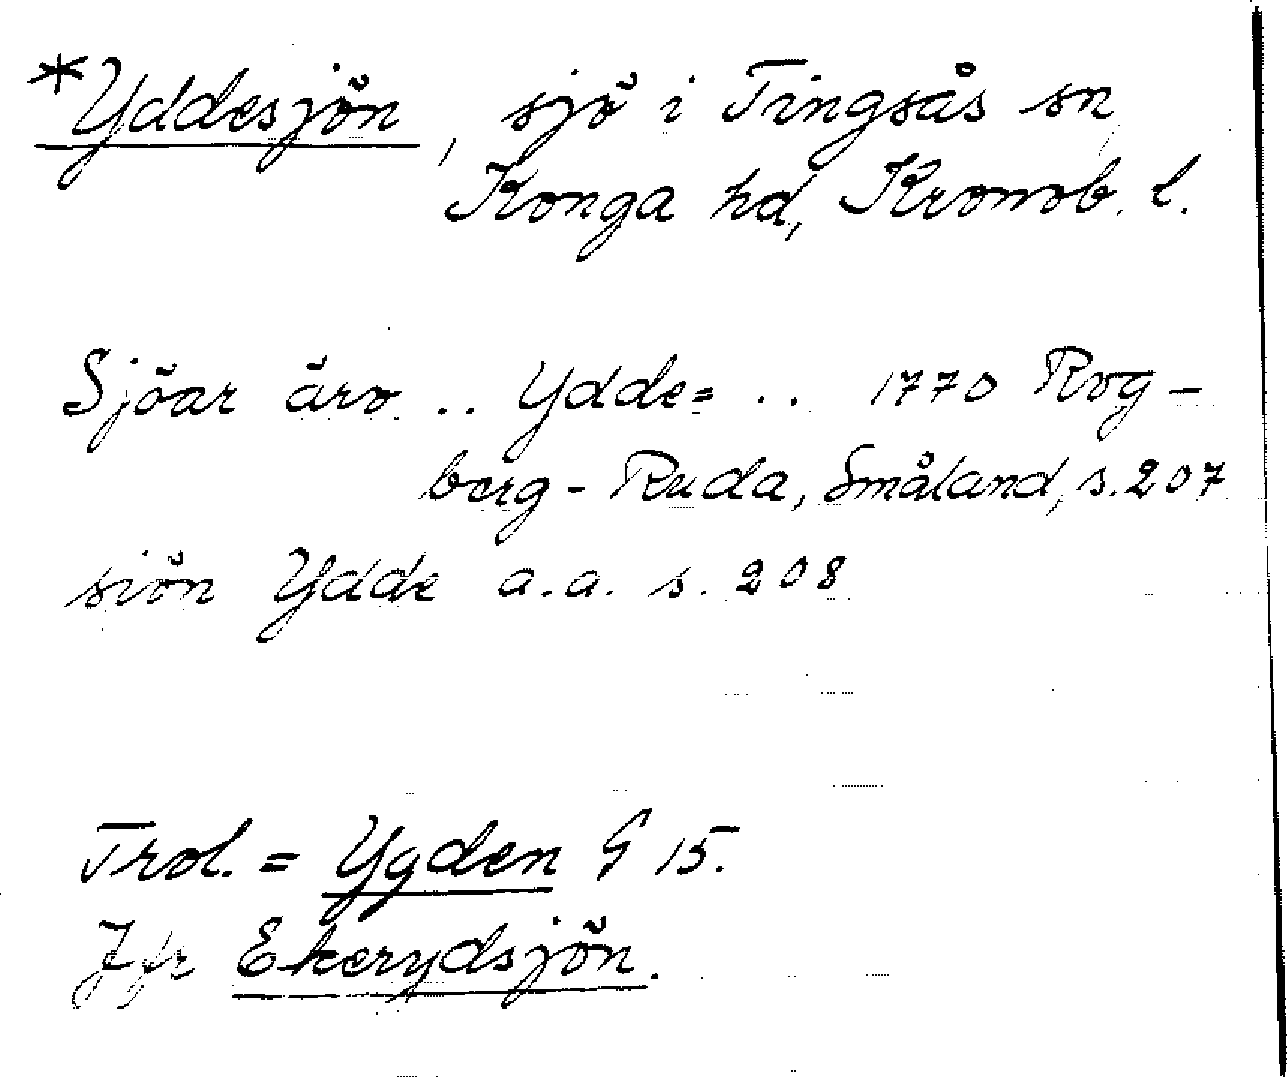 *Yddesjön, sjö i Tingsås sn,
Konga hd, Kronob. l.
Sjöar äro .. Ydde= .. 1770 Rog-
berg-Ruda, Småland, s. 207
siön Ydde a.a. s. 208
Trol. = Ygden G 15.
Jfr Ekerydsjön.